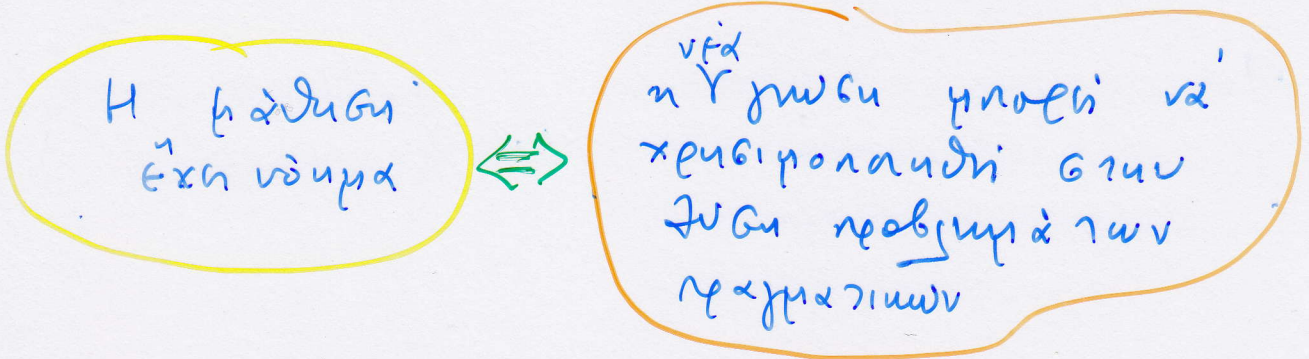 Η μάθηση
έχει νόημα
⇔
νέα
η γνώση μπορεί νά
χρησιμοποιηθεί στην
λύση προβλημάτων
πραγματικών